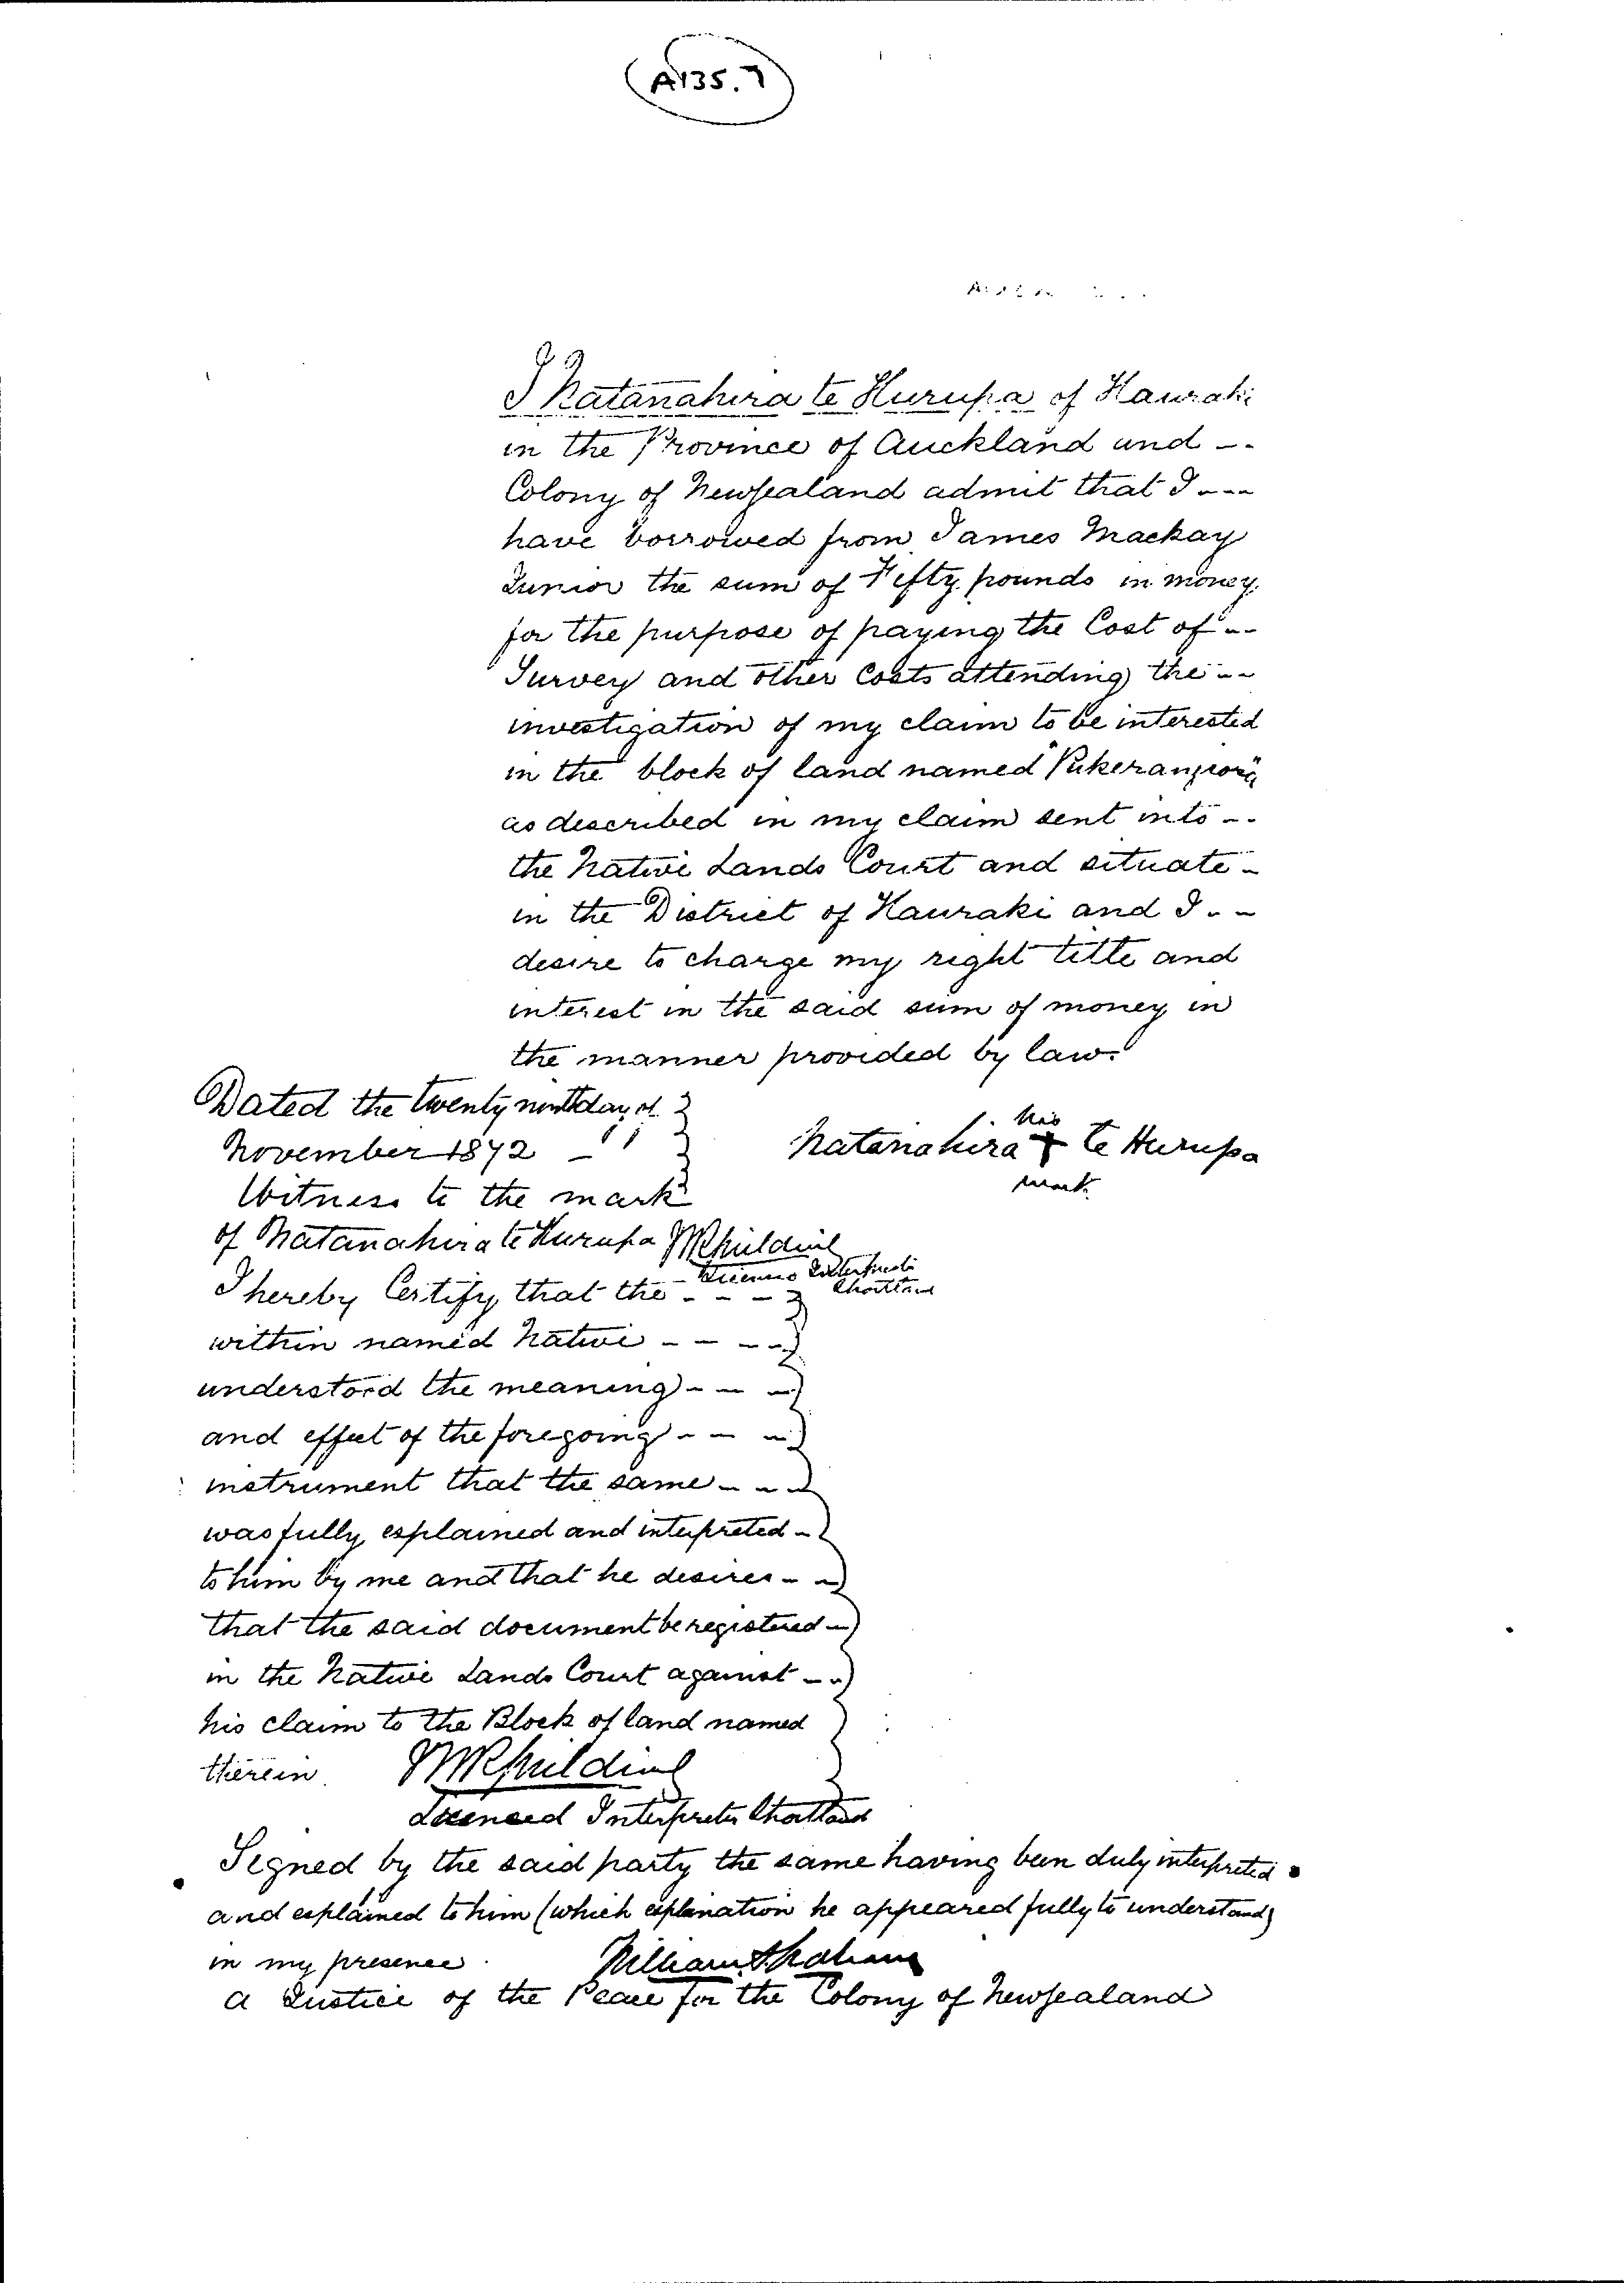 A135.7
I Natanahira te Hurupa of Hauraki
in the Province of Auckland and
Colony of New Zealand admit that I
have borrowed from James Mackay
Junior the sum of Fifty pounds in money
for the purpose of paying the Cost of
Survey and other Costs attending the
investigation of my claim to be interested
in the block of land named "Pukerangiora"
as described in my claim sent into
the Native Lands Court and situate
in the District of Hauraki and I
desire to charge my right title and
interest in the said sum of money in
the manner provided by law.
Dated the twenty ninth day of
November 1872
his
Natanahira + te Hurupa
mark
Witness to the mark
of Natanahira te Hurupa
Interpreter
I hereby Certify that the
within named Native
understood the meaning
and effect of the foregoing
instrument that the same
was fully explained and interpreted
to him by me and that he desires
that the said document be registered
in the Native Lands Court against
his claim to the Block of land named
therein
Licensed Interpreter Shortland
Signed by the said party the same having been duly interpreted
and explained to him (which explanation he appeared fully to understand)
in my presence
William
a Justice of the Peace for the Colony of New Zealand